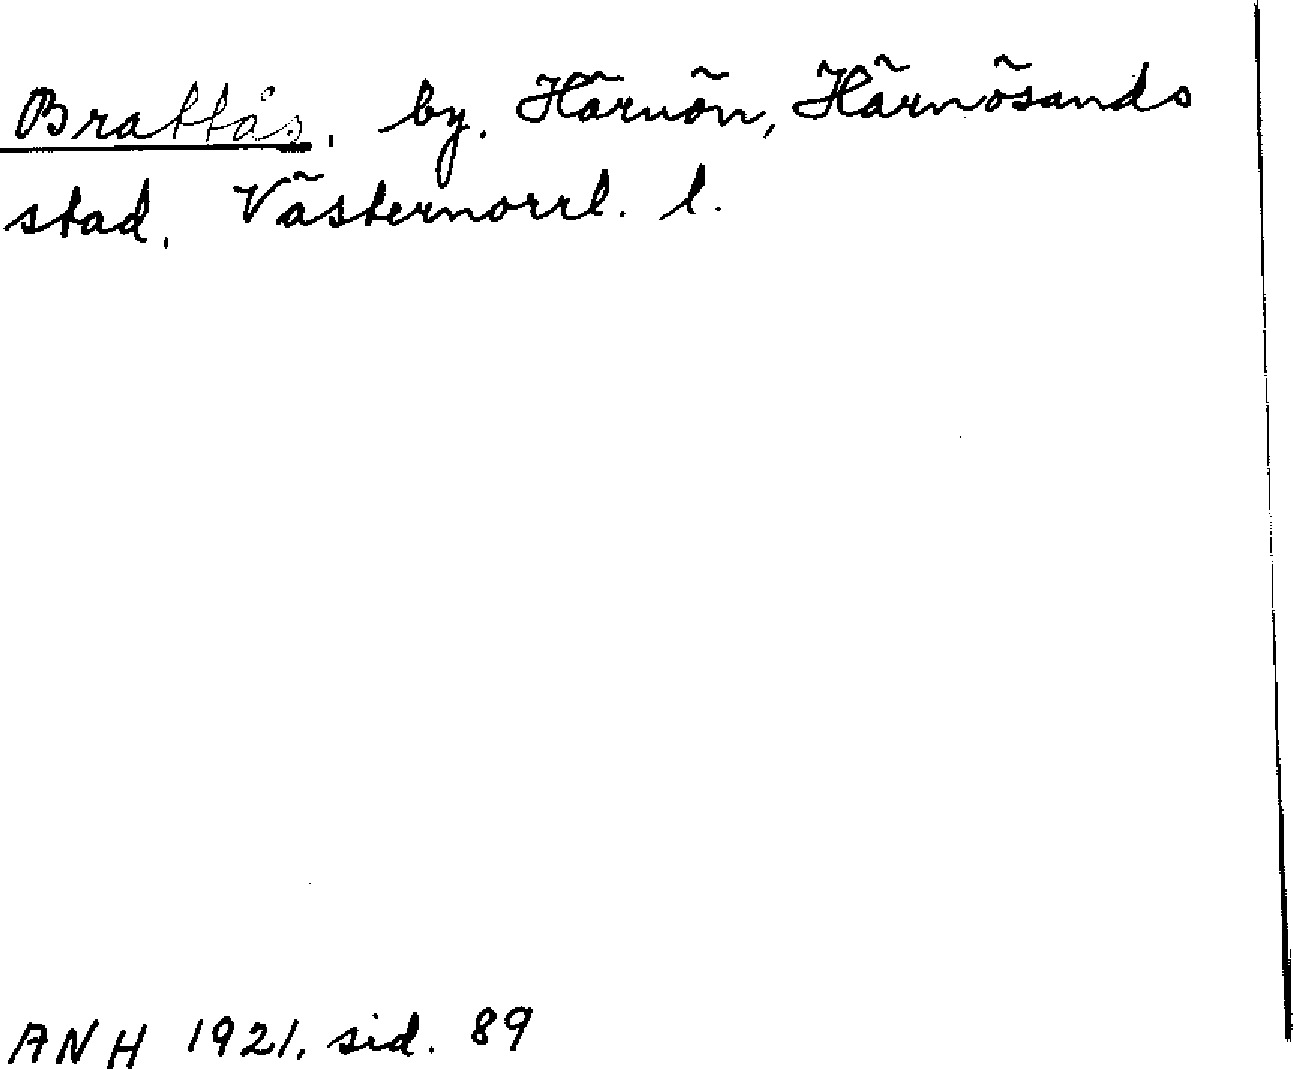 Brattås, by. Härnön, Härnösands
stad, Västernorrl. l.
ANH 1921, sid. 89